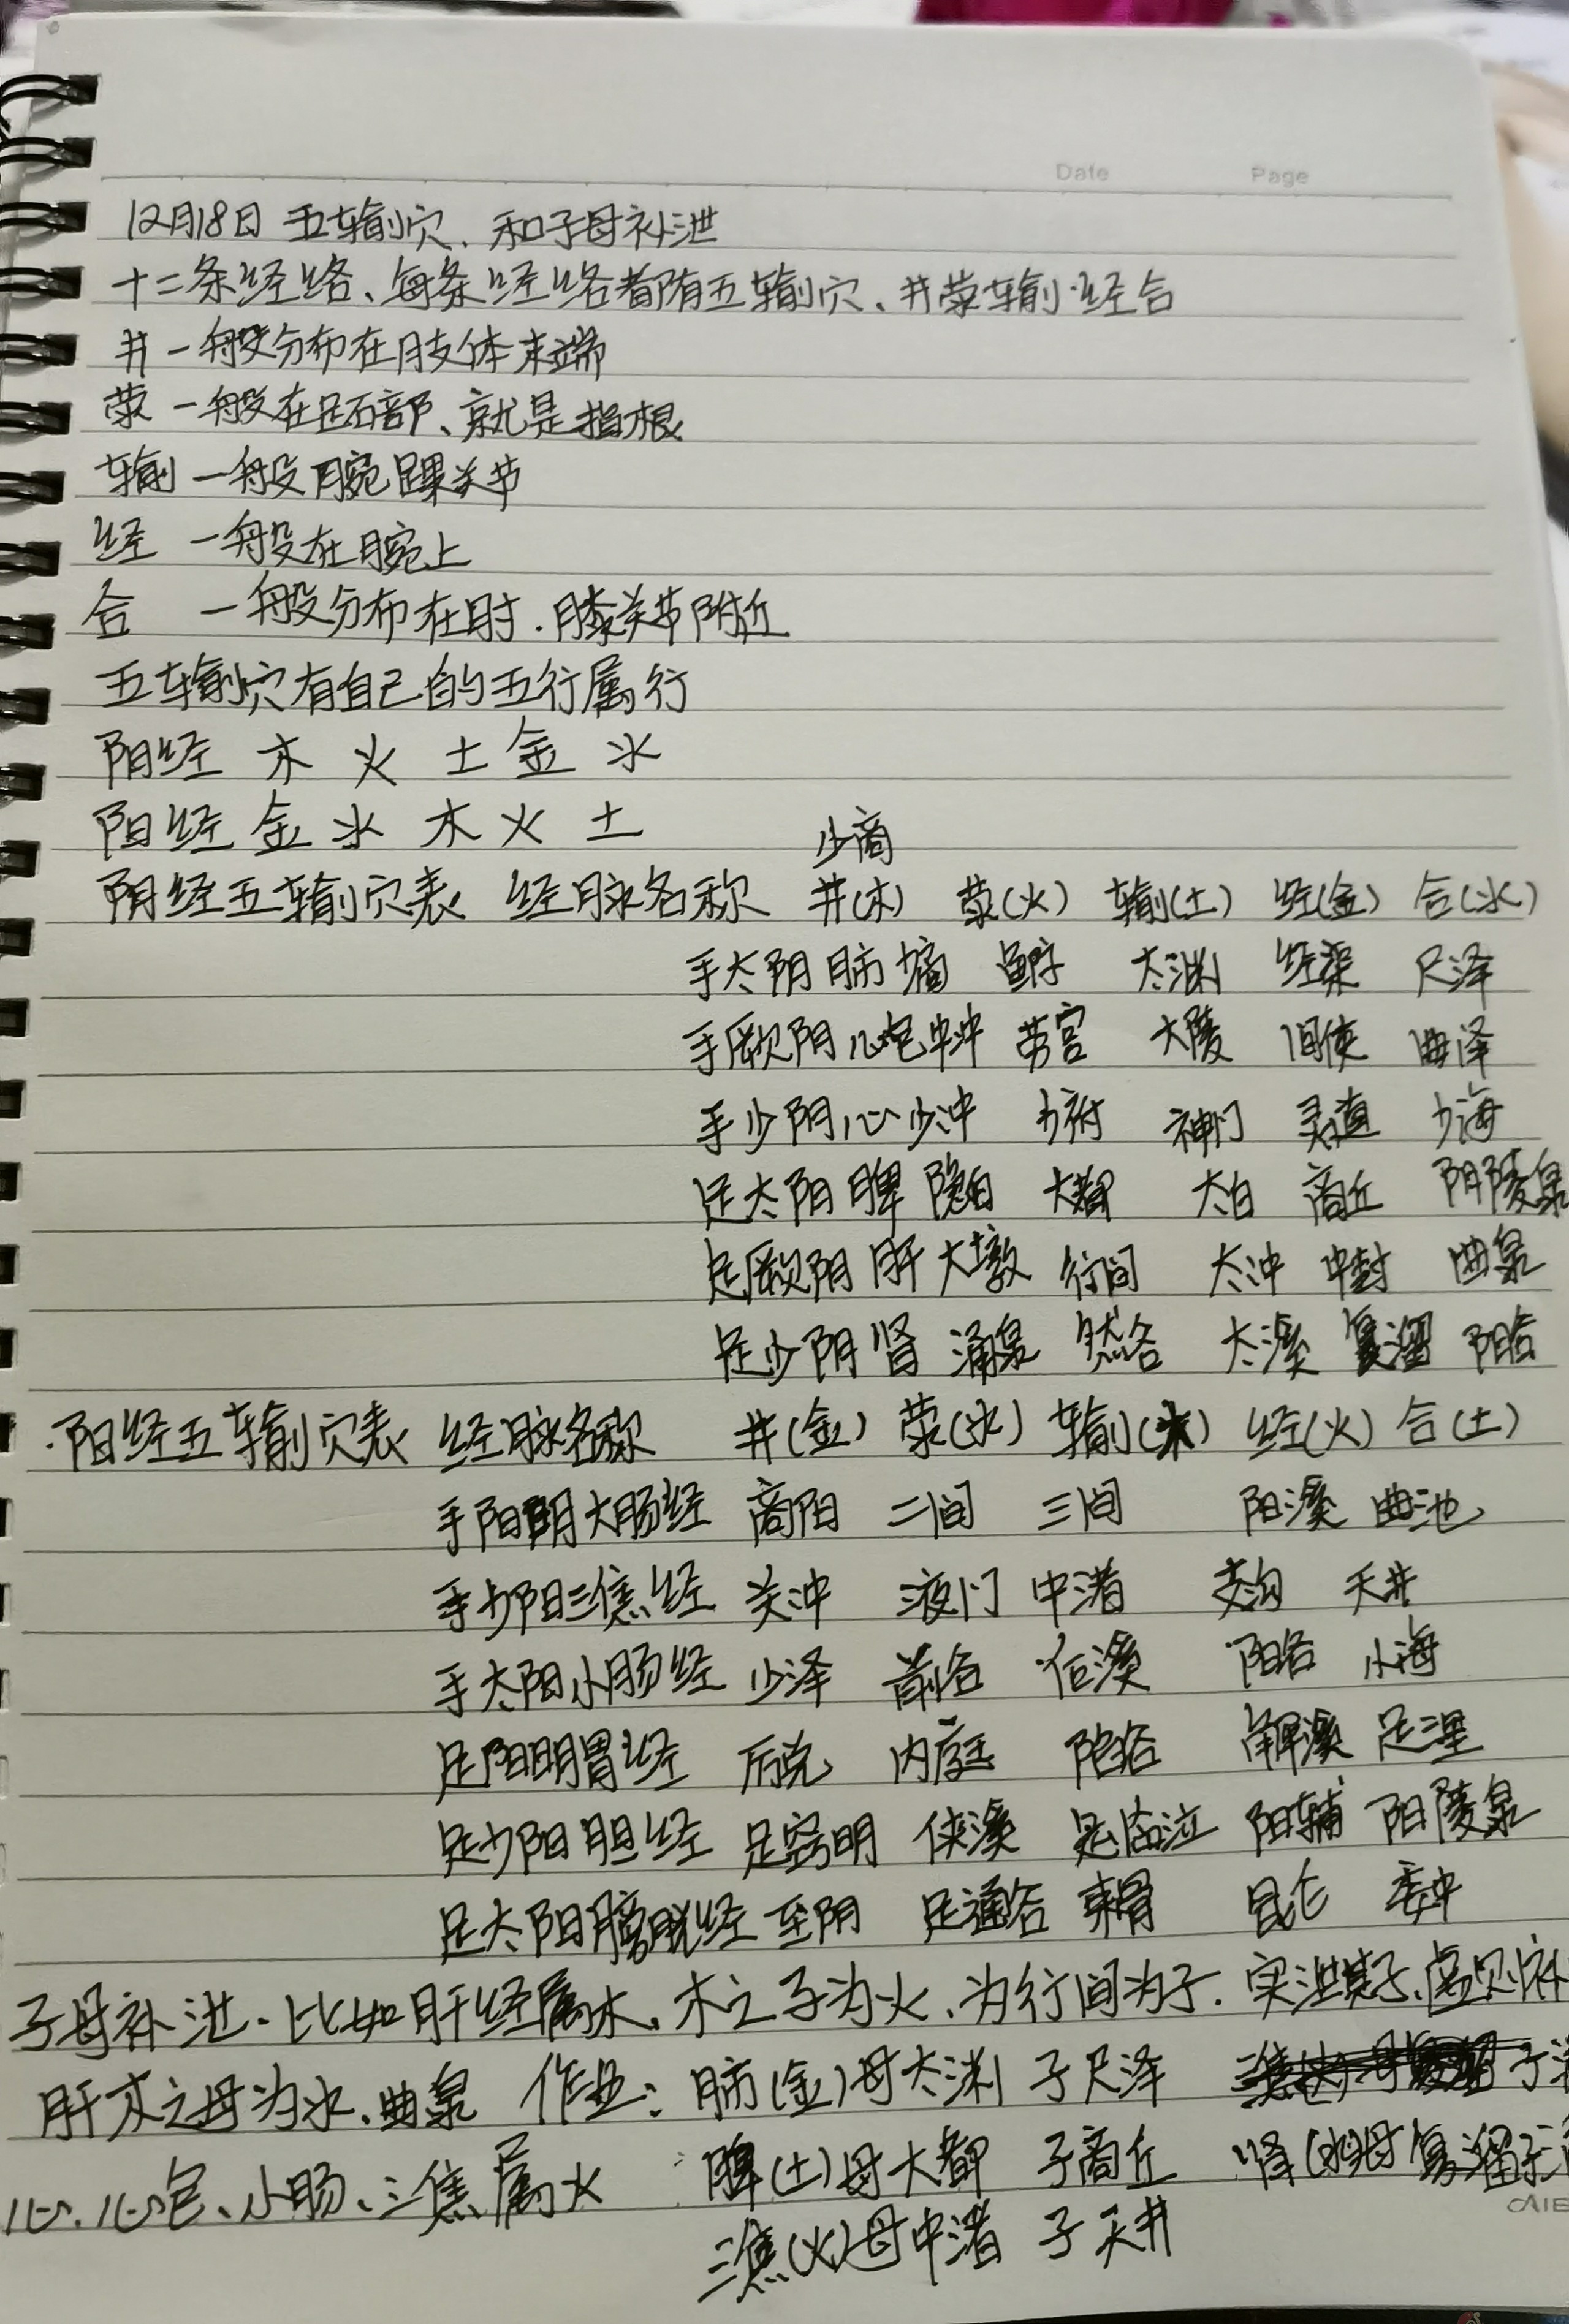 Date Page
12月18日 五输穴、和子母补泄
十二条经络、每条经络都有五输穴、井荥输经合
井 一般分布在肢体末端
荥 一般在跖部、就是指根
输 一般腕踝关节
经 一般在腕上
合 一般分布在肘.膝关节附近
五输穴有自己的五行属行
阳经 木 火 土 金 水
阳经 金 水 木 火 土
少商
阴经五输穴表 经脉名称 井(木) 荥(火) 输(土) 经(金) 合(水)
手太阴肺 少商 鱼际 太渊 经渠 尺泽
手厥阴心包 中冲 劳宫 大陵 间使 曲泽
手少阴心 少冲 少府 神门 灵道 少海
足太阳脾 隐白 大都 太白 商丘 阴陵泉
足厥阴肝 大墩 行间 太冲 中封 曲泉
足少阴肾 涌泉 然谷 太溪 复溜 阳谷
阳经五输穴表 经脉名称 井(金) 荥(水) 输(木) 经(火) 合(土)
手阳明大肠经 商阳 二间 三间 阳溪 曲池
手少阳三焦经 关冲 液门 中渚 支沟 天井
手太阳小肠经 少泽 前谷 后溪 阳谷 小海
足阳明胃经 厉兑 内庭 陷谷 解溪 足三里
足少阳胆经 足窍明 侠溪 足临泣 阳辅 阳陵泉
足太阳膀胱经 至阴 足通谷 束骨 昆仑 委中
子母补泄.比如肝经属木,木之子为火,为行间为子.实泄其子,虚则补
肝木之母为水,曲泉 作业:肺(金)母太渊 子尺泽 子
心、心包、小肠、三焦属火 脾(土)母大都 子商丘 肾(水)母复溜子
三焦(火)母中渚 子天井